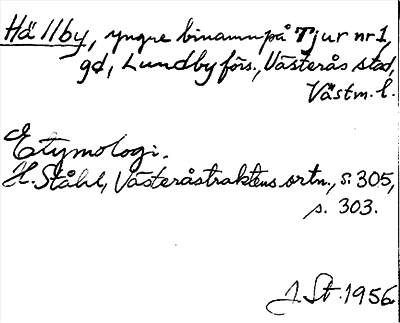 Hällby, yngre binamn på Tjur nr 1,
gd, Lundby förs., Västerås stad,
Västm. l.
Etymologi.
H. Ståhl, Västeråstraktens ortn., s. 305,
s. 303.
J. St. 1956